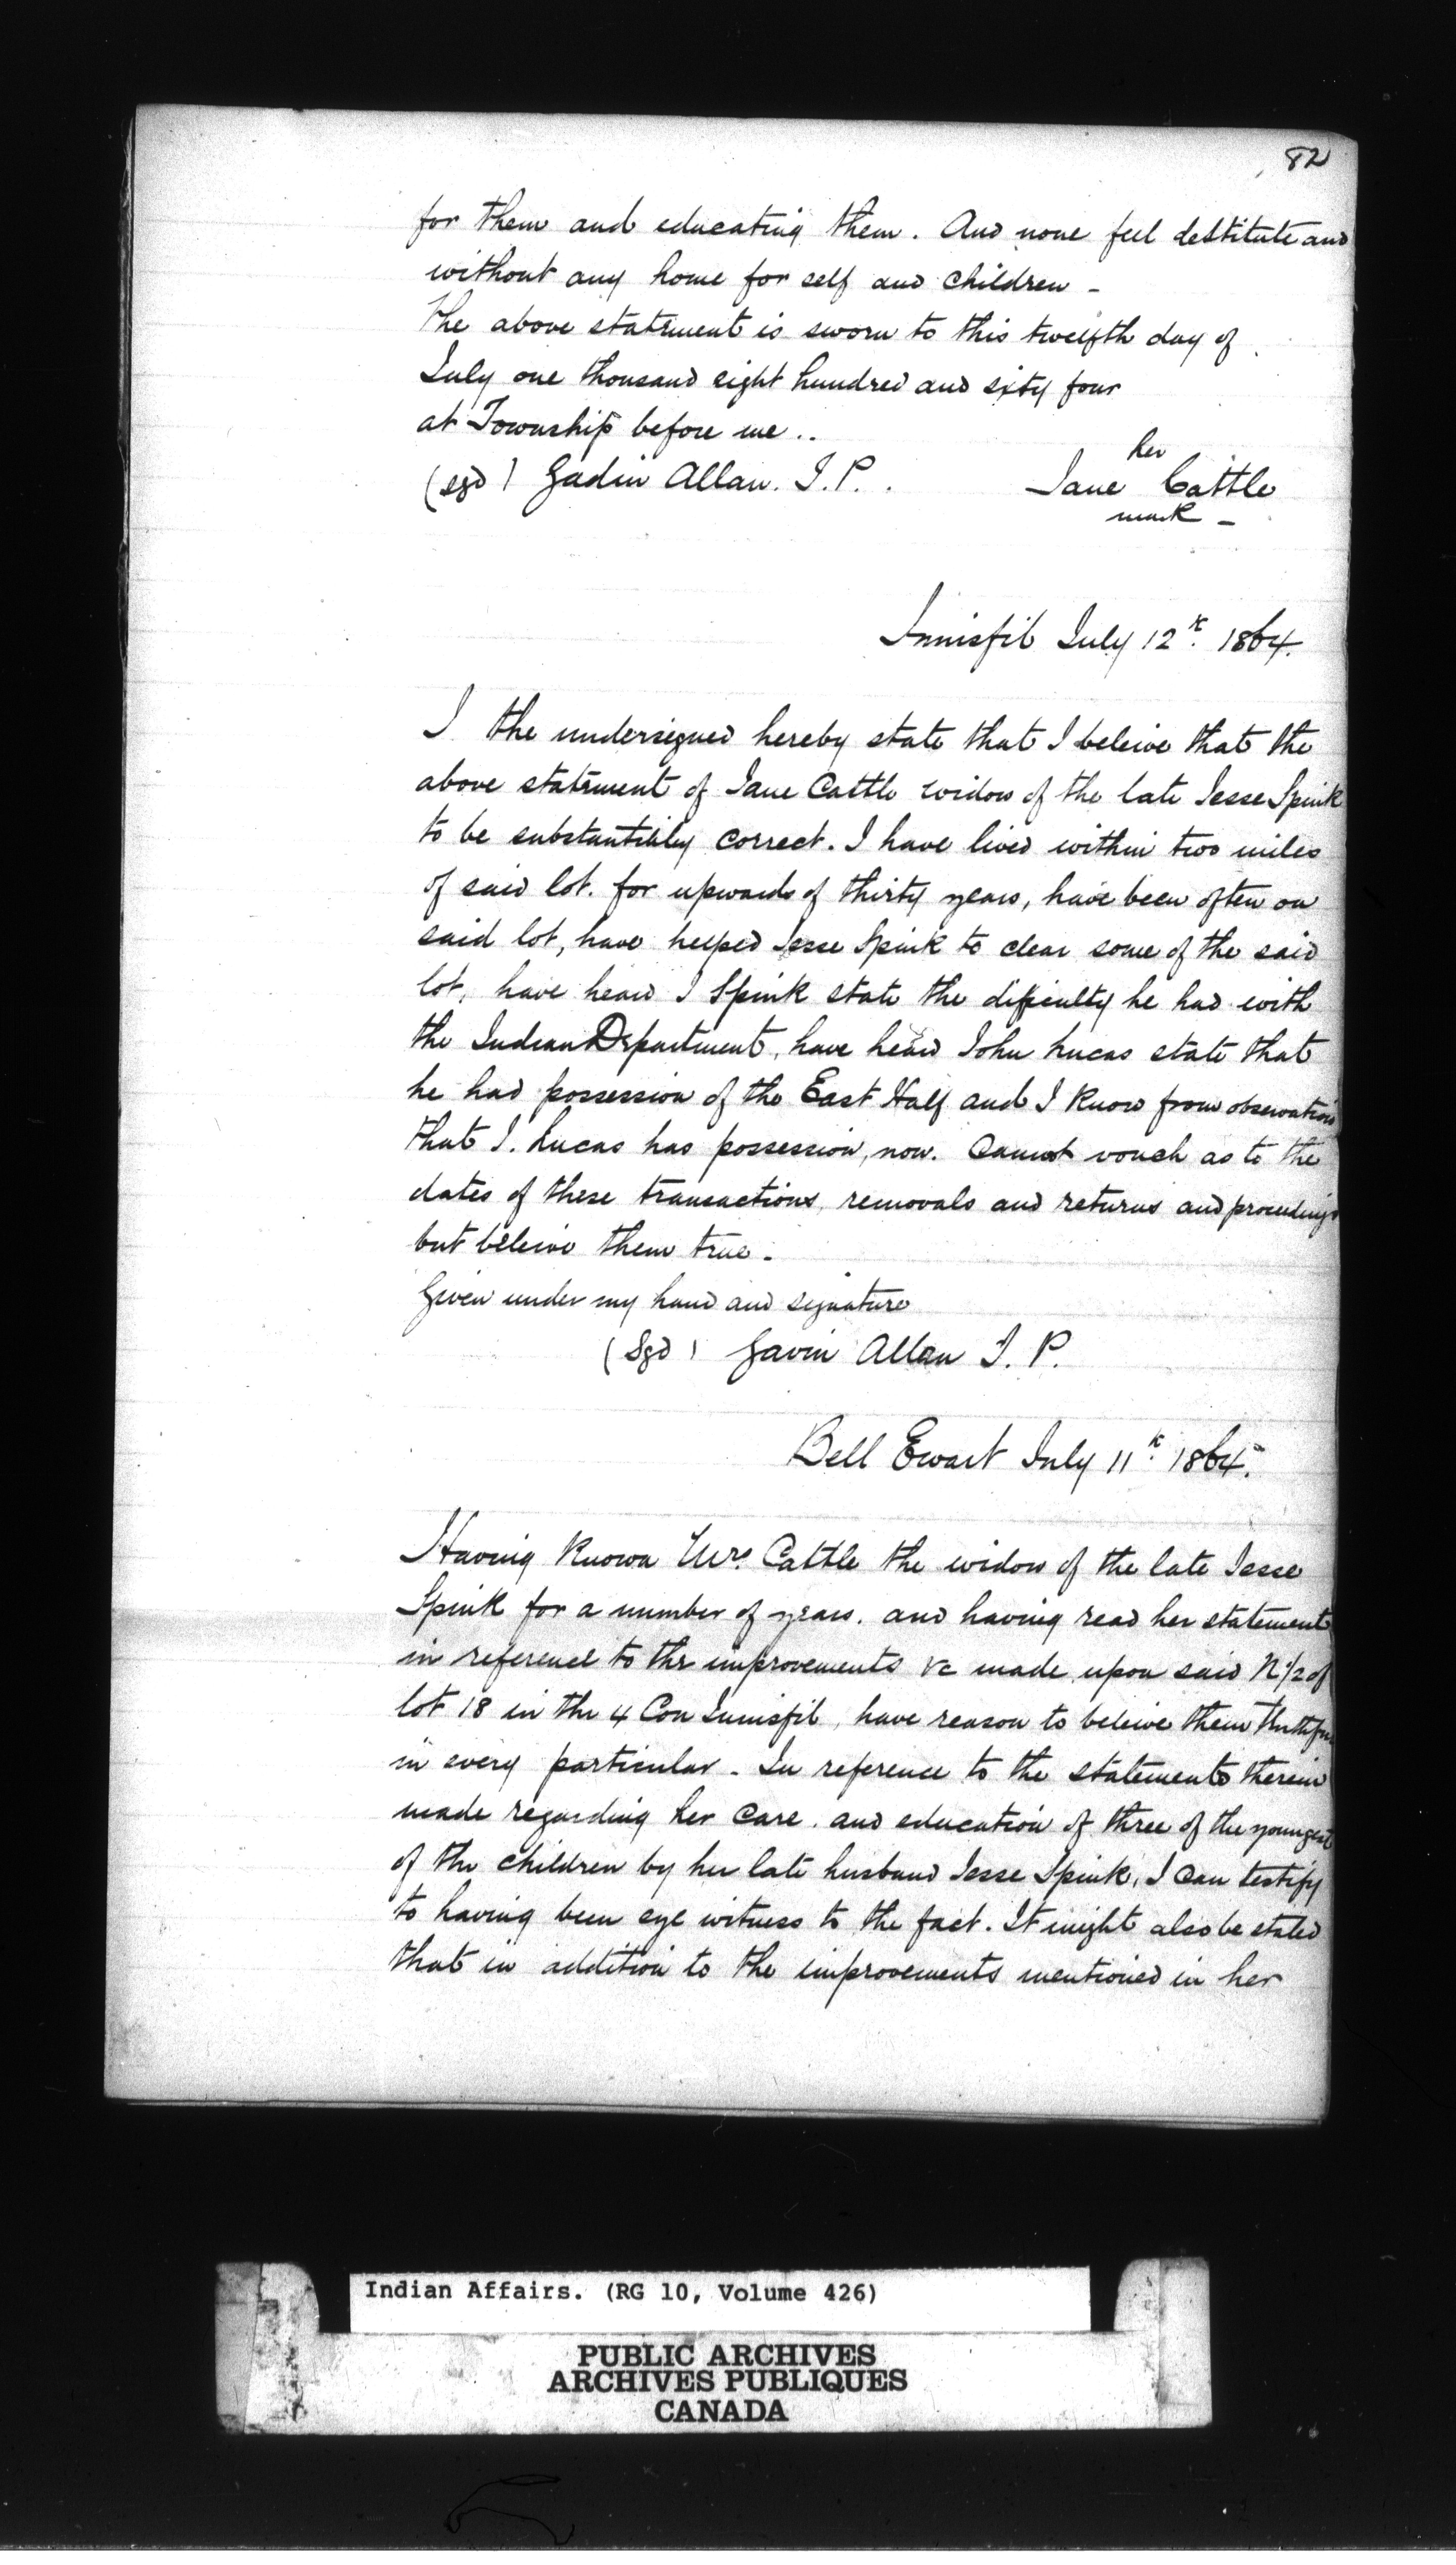 82
for them and educating them. And none feel destitute and
without any home for self and children -
The above statement is sworn to this twelfth day of
July one thousand eight hundred and sixty four
at Township before me..
her
(sgd) Gadin Allan. J.P. . Jane Cattle
mark -
Innisfil July 12th. 1864.
I the undersigned hereby state that I beleive that the
above statement of Jane Cattle widow of the late Jesse Spink
to be substantially correct. I have lived within two miles
of said lot. for upwards of thirty years, have been often on
said lot, have helped Jesse Spink to clear some of the said
lot, have heard J Spink state the difficulty he had with
the Indian Department, have heard John Lucas state that
he had possession of the East Half and I know from observation
that J. Lucas has possession, now. Cannot vouch as to the
dates of these transactions, removals and returns and proceedings
but beleive them true -
Given under my hand and signature
(Sgd) Gavin Allan J. P.
Bell Ewart July 11th. 1864.
Having known Mrs. Cattle the widow of the late Jesse
Spink for a number of years. and having read her statements
in reference to the improvements &c made upon said N 1/2 of
lot 18 in the 4 Con Innisfil, have reason to beleive them
in every particular - In reference to the statements therein
made regarding her care. and education of three of the youngest
of the children by her late husband Jesse Spink, I can testify
to having been eye witness to the fact. It might also be stated
that in addition to the improvements mentioned in her
Indian Affairs. (RG 10, Volume 426)
PUBLIC ARCHIVES
ARCHIVES PUBLIQUES
CANADA